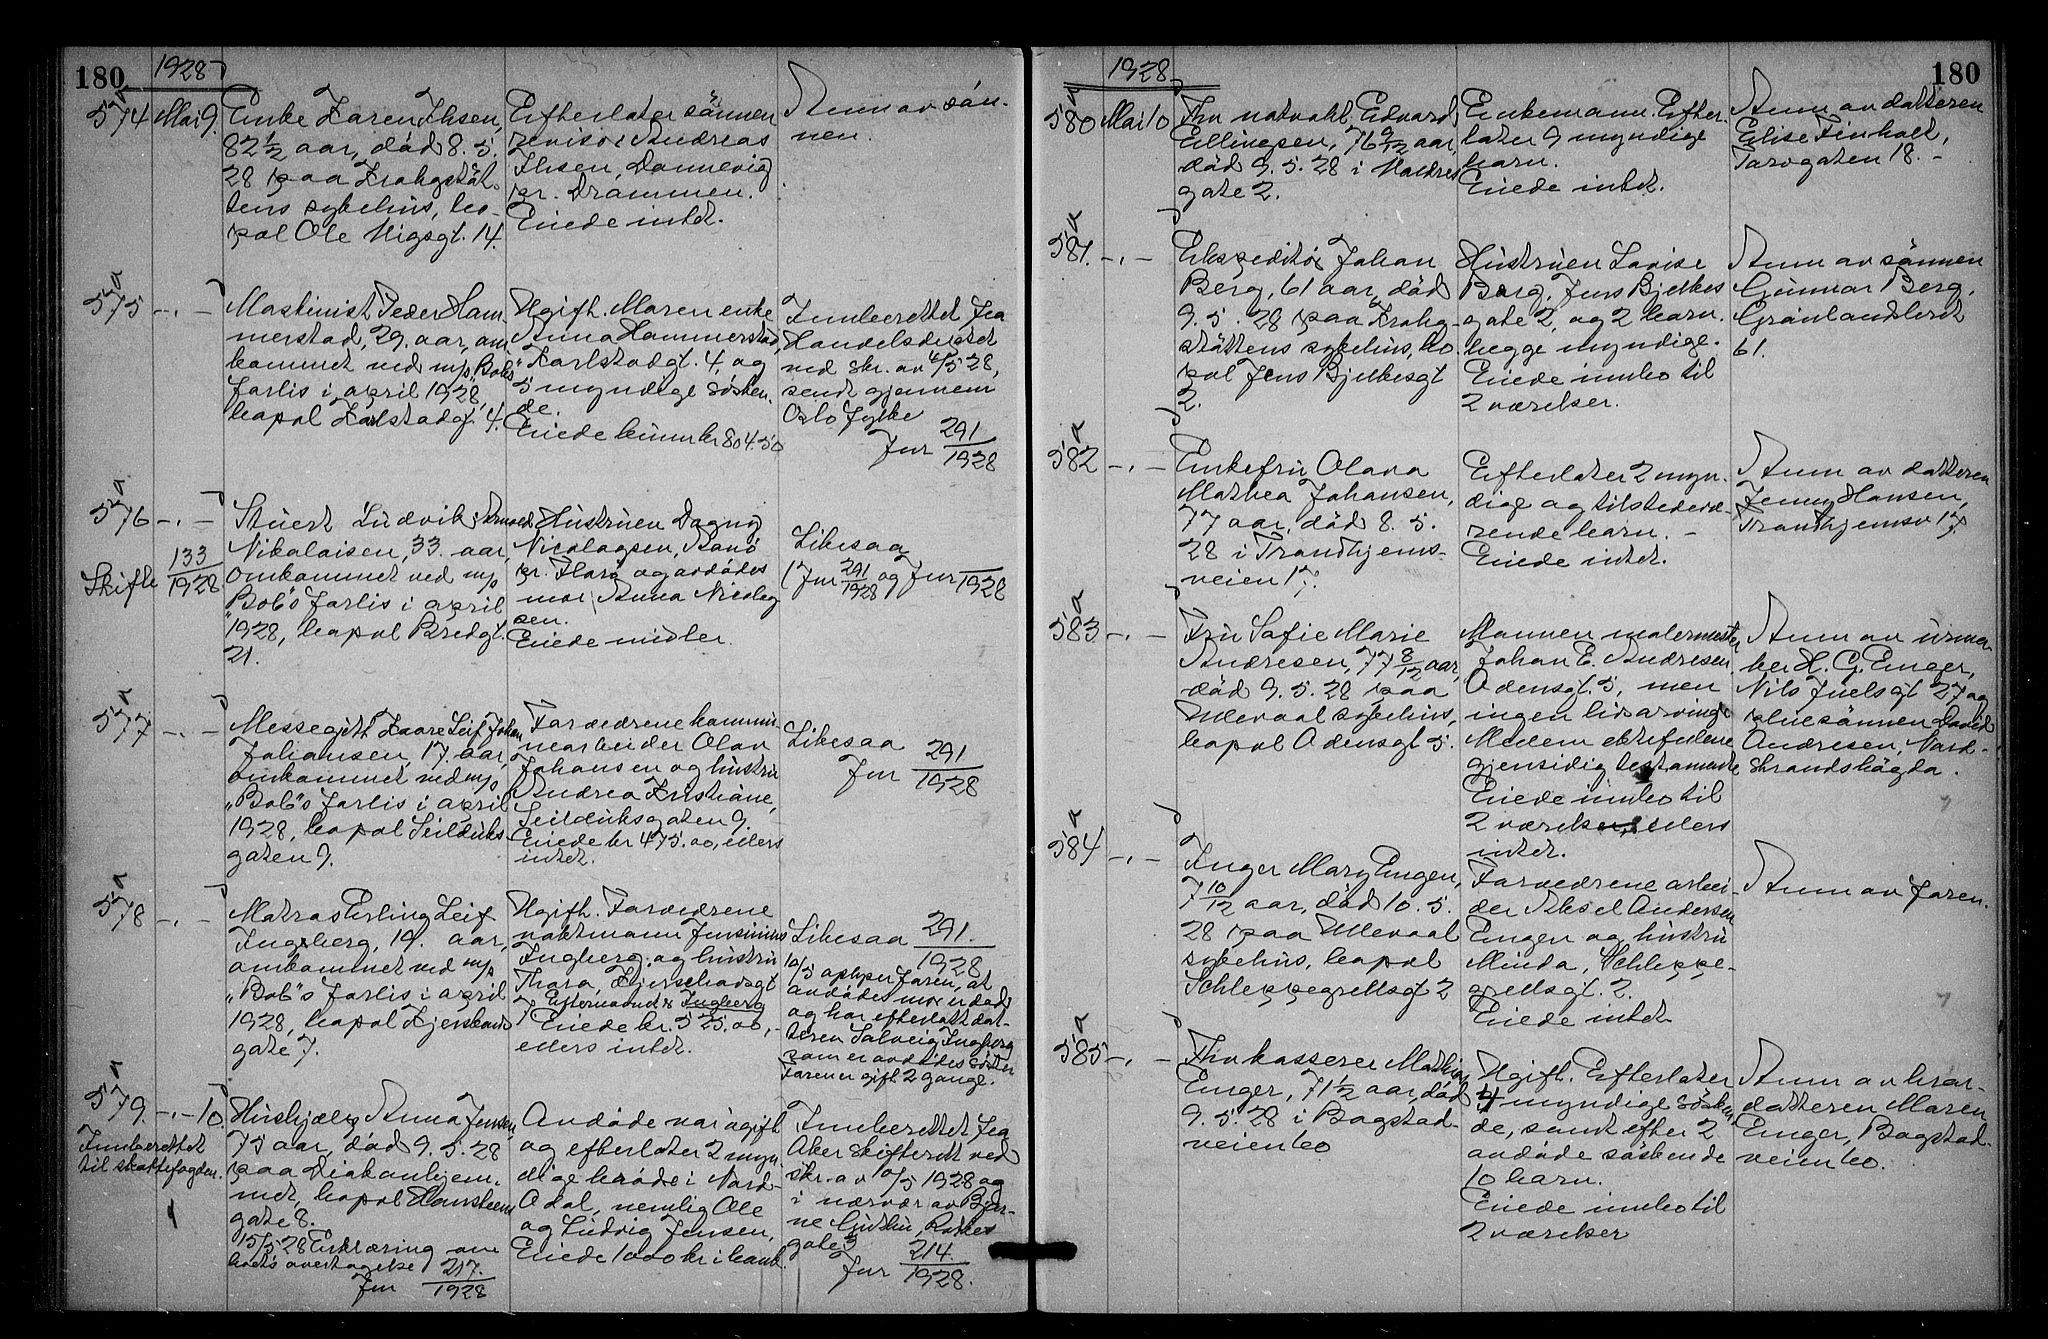 180
1928
574a
Mai 9.
Enke Karen Ihsen,
82 1/2 aar, död 8. 5.
28 paa Krohgstöt-
tens sykehus, bo-
pæl Ole Vigsgt. 14.
Efterlater sönnen
revisor Andreas
Ihsen, Dannevig
pr. Drammen.
Eiede intet.
Anm av sön-
nen.
575a
-"-
Maskinist Peder Ham
merstad, 29. aar, om
kommet ved m/s „Bobs"
forlis i april 1928,
bopæl Karlstadgt. 4.
Ugift. Moren enke
Anna Hammerstad,
Karlstadgt. 4, og
5 myndige sösken-
de.
Eiede kun kr 804.50
Innberettet fra
Handelsdept
ved skr. av 4/5 28,
sendt gjennem
Oslo fylke
Jnr 291/1928
576a
-"-
Skifte 133/1928
Stuert Ludvik Arnold
Nikolaisen, 33. aar,
omkommet ved m/s
„Bob"s forlis i april
1928, bopæl Bredgt.
21.
Hustruen Dagny
Nicolaysen,
pr. og avdödes
mor Anna Nicolay
sen.
Eiede midler.
Likesaa
(Jnr 291/1928 og Jnr /1928
577a
-"-
Messegutt Kaare Leif Johan
Johansen, 17. aar,
omkommet ved m/s
„Bob"s forlis i april
1928, bopæl Seilduks
gaten 9.
Forældrene kommu-
nearbeider Olav
Johansen og hustru
Andrea Kristiane,
Seilduksgaten 9.
Eiede kr 475.00, ellers
intet.
Likesaa
Jnr 291/1928
578a
-"-
Matros Erling Leif
Ingberg, 19. aar,
omkommet ved m/s
„Bob"s forlis i april
1928, bopæl Hjerskovs
gate 7.
Ugift. Forældrene
vaktmann Jensinius
Ingberg og hustru
Thora,
7 Efternavnet er Ingberg
Eiede kr. 525.00,
ellers intet.
Likesaa 291/1928
10/5 oplyser faren, at
avdödes mor er död
og har efterlatt dat-
teren Solveig Ingberg
som er avdödes söster
Faren er gift 2 gange.
579a
-"- 10
Innberettet
til skattefogden.
Hushjælp Anna Jensen,
75 aar, död 9. 5. 28
paa Diakonhjem-
met, bopæl Hansteens
gate 8.
15/5 28 Erklæring om
boets overtagelse
Jnr 217/1928
Avdöde var ugift
og efterlater 2 myn-
dige brödre i Nord-
Odal, nemlig Ole
og Ludvig Jensen,
Eiede 1000 kr i bank.
Innberettet fra
Aker Skifterett ved
skr. av 10/5 1928 og
i nærvær av Bjar-
ne
gate 3
Jnr 214/1928.
1928
180
580a
Mai 10
Fhv natvakt Edvard
Ellingsen, 76 9/12 aar,
död 9. 5. 28 i Valdres
gate 2.
Enkemann. Efter-
later 9 myndige
barn.
Eiede intet.
Anm av datteren
Elise Finholt,
Torvgaten 18. -
581a
-"-
Ekspeditör Johan
Berg, 61 aar, död
9. 5. 28 paa Krohg-
stöttens sykehus, bo
pæl Jens Bjelkesgt
2.
Hustruen Lovise
Berg, Jens Bjelkes
gate 2, og 2 barn.
begge myndige.
Eiede innbo til
2 værelser.
Anm av sönnen
Gunnar Berg,
Grönlandsleret
61.
582a
-"-
Enkefru Olava
Mathea Johansen,
77 aar, död 8. 5.
28 i Trondhjems-
veien 17.
Efterlater 2 myn-
dige og tilstedevæ-
rende barn. -
Eiede intet.
Anm av datteren
Jenny Hansen,
Trondhjemsv 17.
583a
-"-
Fru Sofie Marie
Andresen, 77 8/12 aar,
död 9. 5. 28 paa
Ullevaal sykehus,
bopæl Odensgt 5.
Mannen malermester
Johan E. Andresen
Odensgt. 5, men
ingen livsarvinge
Mellem ektefellene
gjensidig testamente
Eiede innbo til
2 værelser, ellers
intet.
Anm av urma-
ker H. G. Enger,
Nils Juelsgt 27 og
pleiesönnen David
Andresen, Nord-
strandshögda.
584a
-"-
Inger Mary Engen,
7 10/12 aar, död 10. 5.
28 paa Ullevaal
sykehus, bopæl
Schleppegrellsgt 2
Forældrene arbei-
der Aksel Andersen
Engen og hustru
Minda, Schleppe-
grellsgt. 2.
Eiede intet
Anm av faren.
585a
-"-
Fhv kasserer Mathias
Enger, 71 1/2 aar, död
9. 5. 28 i Bogstad-
veien 60
Ugift. Efterlater
4 myndige sösken
de, samt efter 2
avdöde söskende
10 barn.
Eiede innbo til
2 værelser
Anm av bror-
datteren Maren
Enger, Bogstad-
veien 60.